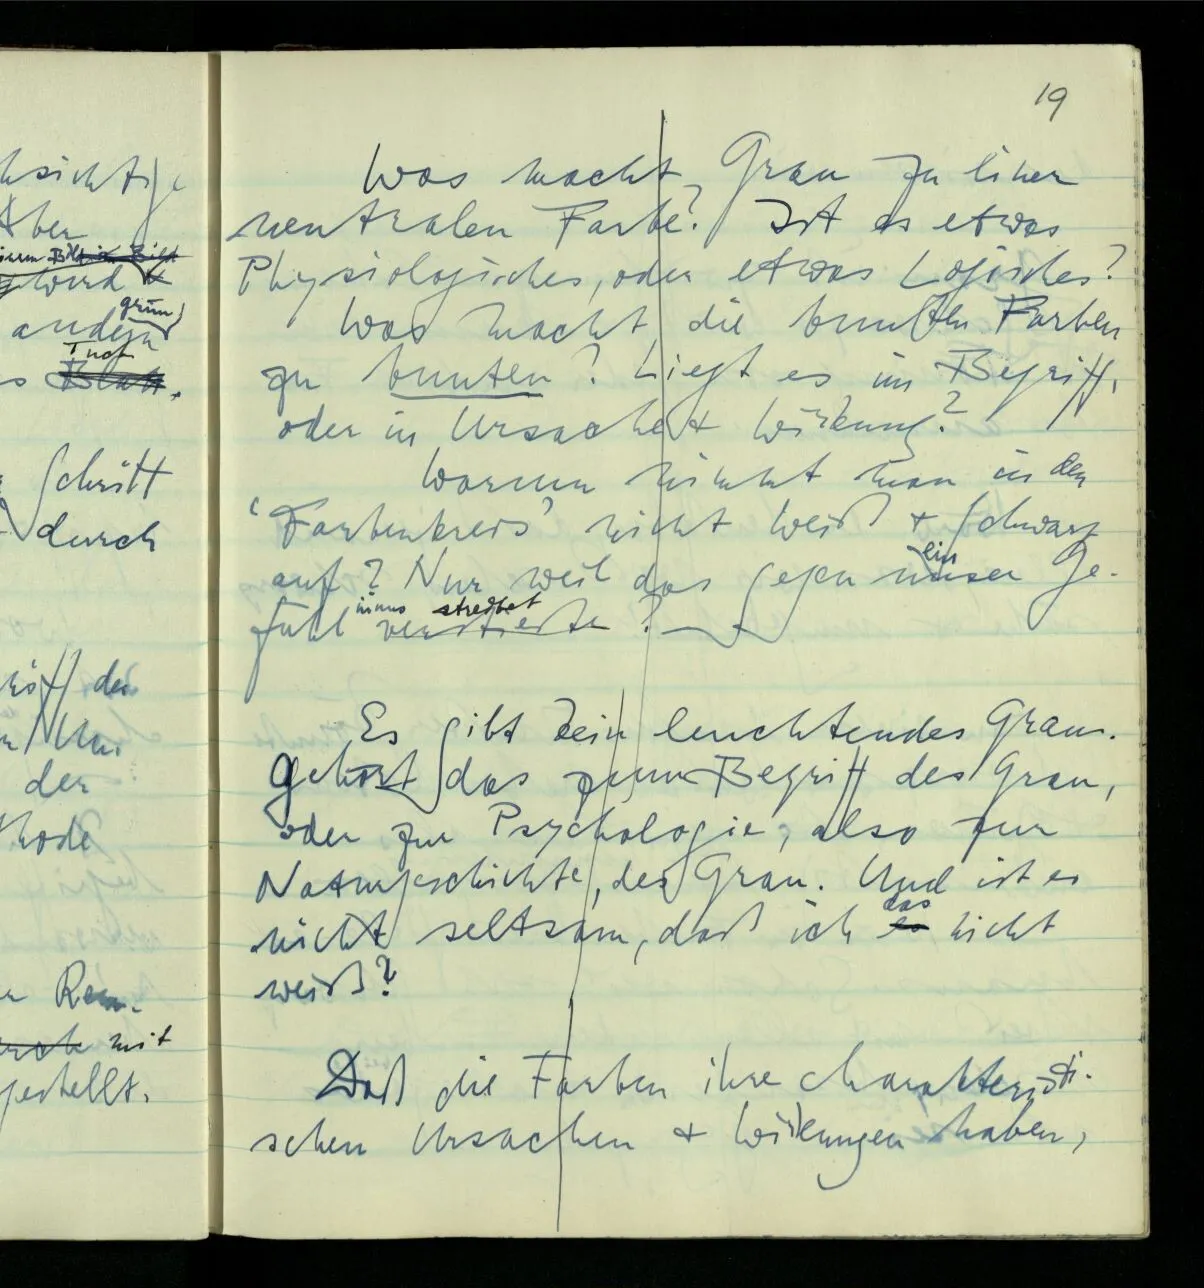 hsichtige
Aber
wird
grün
andern
Tuch
s Blatt.
Schritt
durch
der
der
thode
mit
gestellt.
19
Was macht Grau zu einer
neutralen Farbe? Ist es etwas
Physiologisches, oder etwas Logisches?
Was macht die bunten Farben
zu bunten? Liegt es im Begriff,
oder in Ursache & Wirkung?
Warum nimmt man in den
'Farbenkreis' nicht Weiß & Schwarz
auf? Nur weil das gegen ein unser Ge-
fühl in uns streitet verstieße?
Es gibt kein leuchtendes Grau.
Gehört das zum Begriff des Grau,
oder zur Psychologie, also zur
Naturgeschichte, des Grau. Und ist es
nicht seltsam, daß ich es das nicht
weiß?
Daß die Farben ihre charakteristi-
schen Ursachen & Wirkungen haben,